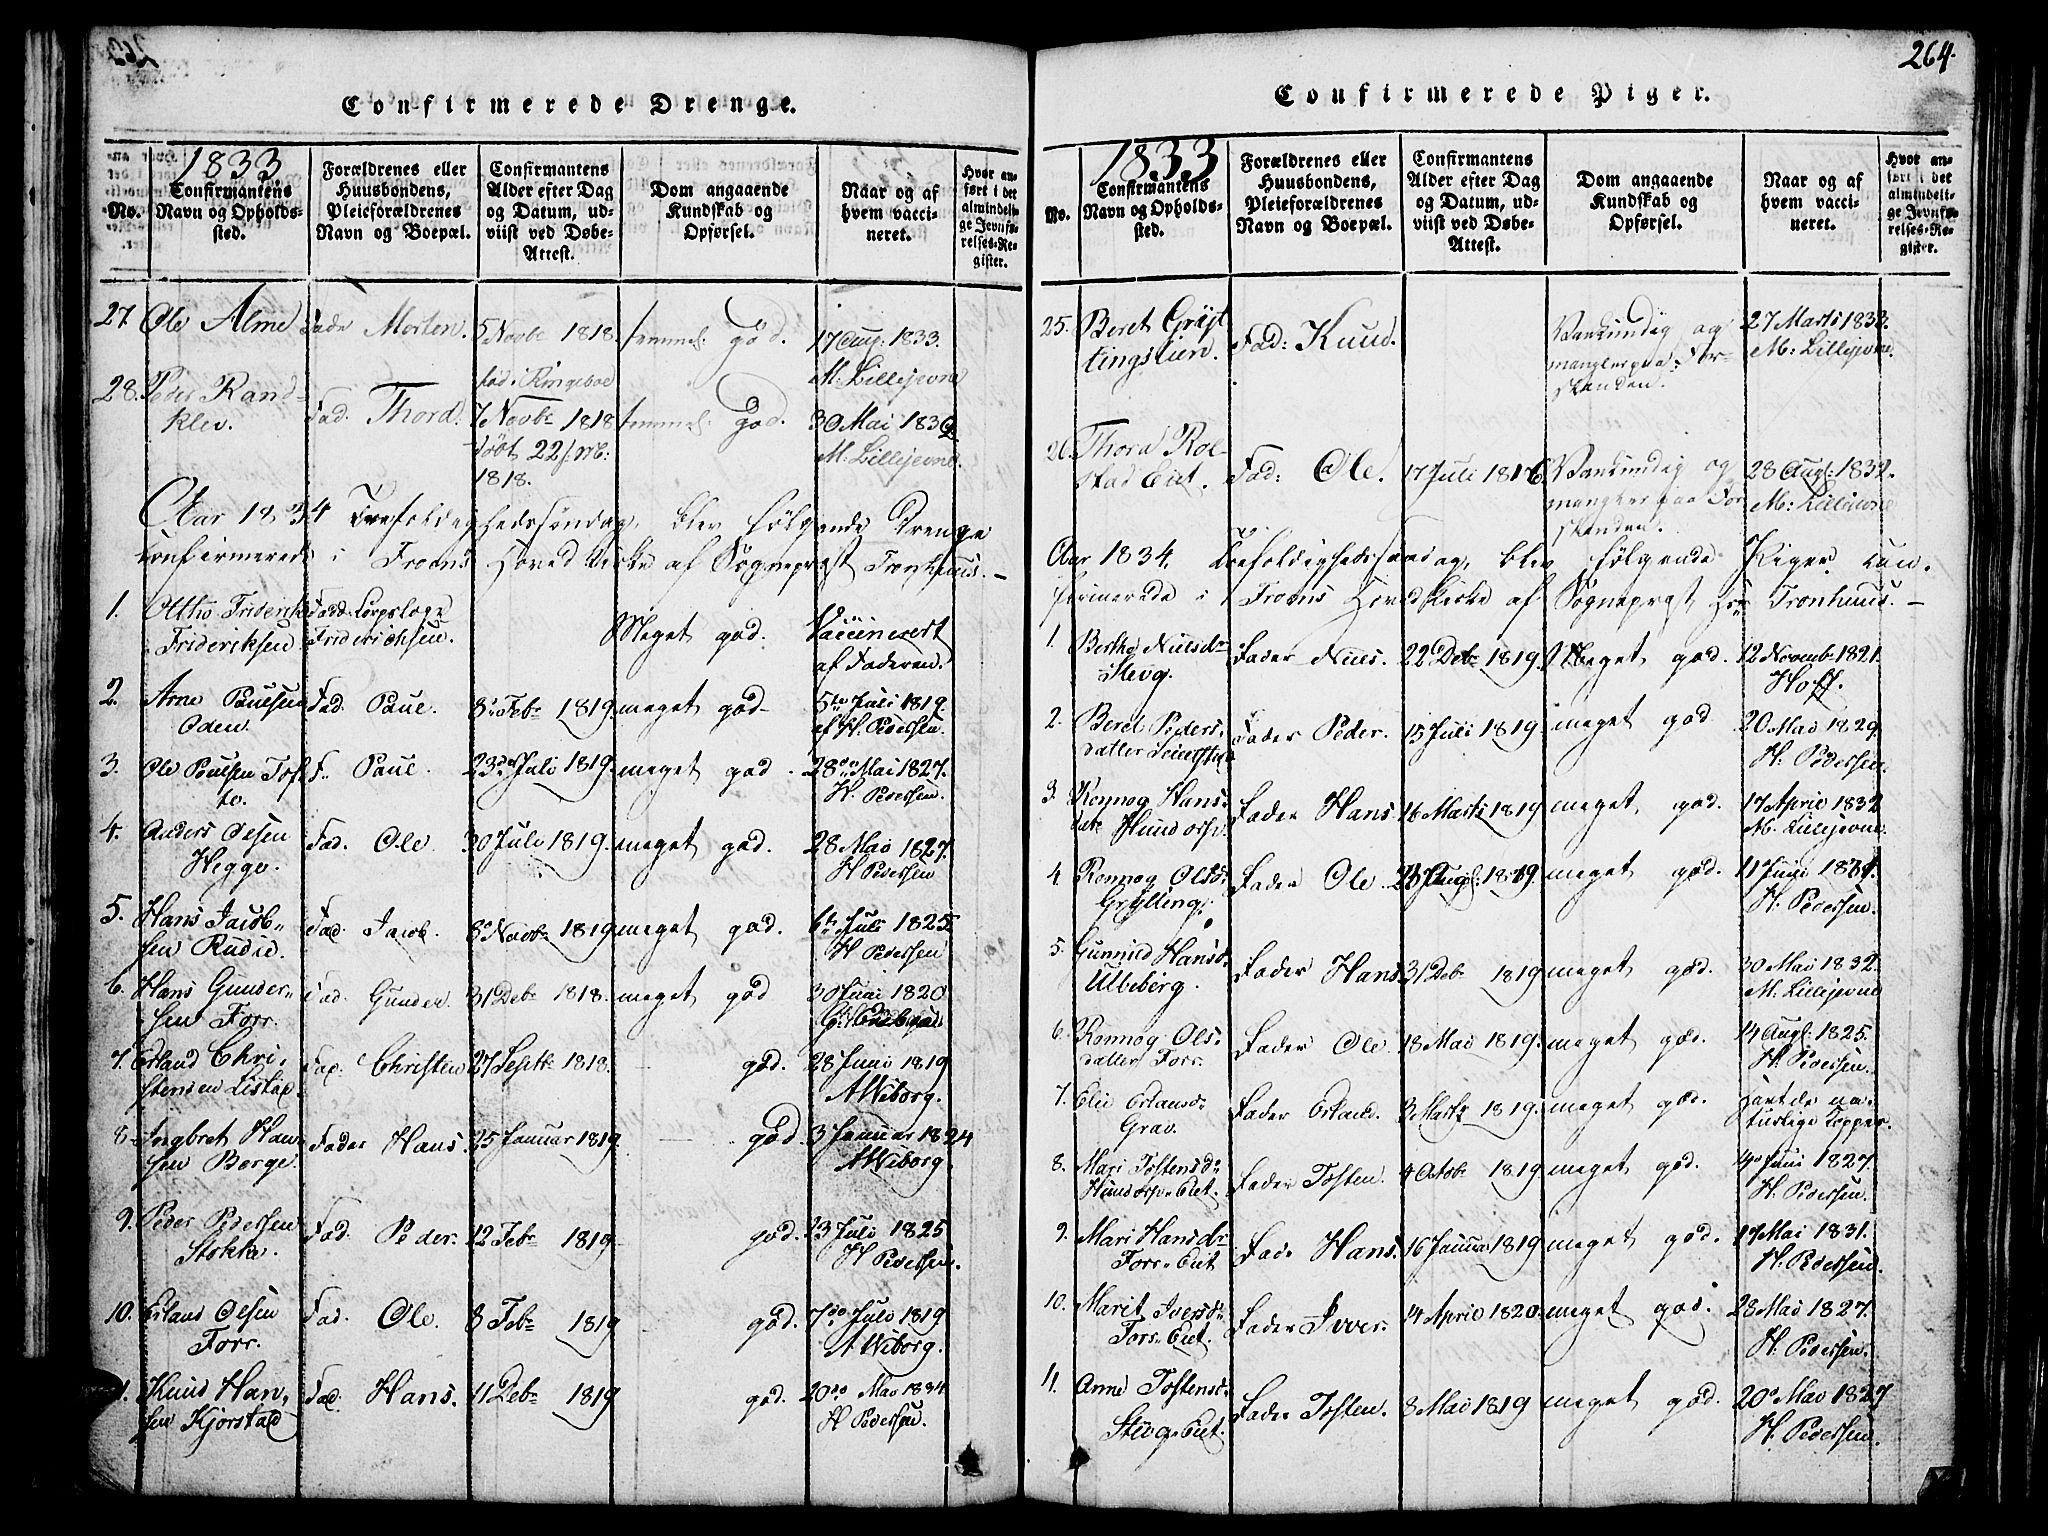 264.
Confirmerede Drenge.
No.
1833
Confirmantens Navn og Opholdssted.
Forældrenes eller Huusbondens, Pleieforældrenes Navn og Boepæl.
Confirmantens Alder efter Dag og Datum, udviist ved Døbe-Attest.
Dom angaaende Kundskab og Opførsel.
Naar og af hvem vaccineret.
Hvor anført i det almindelige Jevnførelses-Register.
27. Ole Alme Fader Morten. 5 Novbr 1818. temmel: god. 17 Aug: 1833.
M: Lillejevne
28. Peder Randklev. Fad: Thord. født i Ringeboe 7 Novbr 1818 døbt 22 1818. temmel: god. 30 Mai 1832
M: Lillejevne.
Aar 1834 Trefoldighedssøndag, blev følgende Drenge
confirmerede i Froens Hoved Kirke af Sognepræst Tronhuus. —
1. Ottho Friderick Frideriksen Fader Corpslæge Friderichsen. Meget god. Vaccineret af Faderen.
2. Arne Poulsen Oden. Fad. Poul. 8 Febr 1819. meget god 5te Juli 1819. af H. Pedersen.
3. Ole Poulsen Tofte. F. Poul. 23de Juli 1819. meget god. 28de Mai 1827. H. Pedersen.
4. Anders Olsen Hegge. Fad. Ole. 30 Juli 1819. meget god. 28 Mai 1827. H Pedersen
5. Hans Jacobsen Rudie. Fad. Jacob. 8 Novbr 1819 meget god. 6te Juli 1825. H Pedersen
6. Hans Gundersen Forr. Fad. Gunder. 31 Debr 1818. meget god 30 Juni 1820
7. Erland Christensen Listad. Fad. Christen 27 Septbr 1818. god. 28 Juni 1819 A Wiborg.
8. Ingbret Hansen Berge. Fader Hans. 25 Januar 1819. god. 3 Januar 1824 A Wiborg.
9. Peder Pedersen Stokke. Fad. Peder. 12 Febr 1819 god. 23 Juli 1825 H Pedersen.
10. Erland Olsen Forr. Fad. Ole. 8 Febr 1819 god. 7de Juli 1819 A Wiborg.
11. Knud Hansen Kjorstad Fad. Hans. 11 Debr 1819 god. 20de Mai 1834 H Pedersen.
Confirmerede Piger.
No.
1833
Confirmantens Navn og Opholdssted.
Forældrenes eller Huusbondens, Pleieforældrenes Navn og Boepæl.
Confirmantens Alder efter Dag og Datum, udviist ved Døbe-Attest.
Dom angaaende Kundskab og Opførsel.
Naar og af hvem vaccineret.
Hvor anført i det almindelige Jevnførelses-Register.
25. Beret Gryttingslien. Fad: Knud. Vankundig og mangler paa Forstanden. 27 Marts 1833. M: Lillejevne.
26. Thora Rolstad Eiet. Fad: Ole. 17 Juli 1816. Vankundig og mangler paa Forstanden. 28 Augs: 1832. M: Lillejevne
Aar 1834, Trefoldighedssøndag, blev følgende Piger con-
firmerede i Froens Hoved Kirke af Sognepræst Hr Tronhuus. —
1. Berthe Nielsdr Stevg. Fader Niels. 22 Debr 1819. Meget god. 12 Novembr 1821. Hoff.
2. Beret Pedersdatter Fader Peder. 15 Juli 1819 meget god 20 Mai 1829. H. Pedersen.
3. Ronnog Hansdatr Hundorp. Fader Hans 16 Marts 1819 meget god. 17 April 1832 M. Lillejevne.
4. Ronnog Olsdr Grytting. Fader Ole Augs: 1819. meget god. 11 Juni 1834. H. Pedersen.
5. Gunnild Hansdr Ulleberg. Fader Hans 31 Debr 1819 meget god. 30 Mai 1832. M: Lillejevne
6. Ronnog Olsdatter Forr. Fader Ole 18 Mai 1819. meget god. 14 Augs: 1825. H. Pedersen.
7. Eli Erlandsdr Grav. Fader Erland. 3 Marts 1819. meget god. havt de naturlige Kopper.
8. Mari Tostensdr Hundorp Eiet. Fader Tosten. 4 Octobr 1819 meget god. 14 Juni 1827. H. Pedersen.
9. Mari Hansdr Forr Eiet Fader Hans. 16 Januar 1819 meget god. 17 Mai 1831. H. Pedersen.
10. Marit Iversdr Fors Eiet. Fader Iver. 14 April 1820. meget god. 28 Mai 1827. H. Pedersen.
11. Anne Tostensdr Stevg Eiet. Fader Tosten. 8 Mai 1819 meget god. 20 Mai 1827 H. Pedersen.